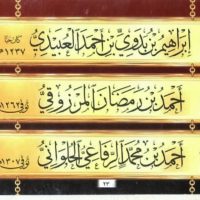 إبراهيم بن بدوي بن أحمد العبيدي كان حيا ١٢٣٧هـ
أحمد بن رمضان المرزوقي ت ١٢٦٢هـ
أحمد بن محمد الرفاعي الحلواني ت ١٣٠٧هـ
٢٣